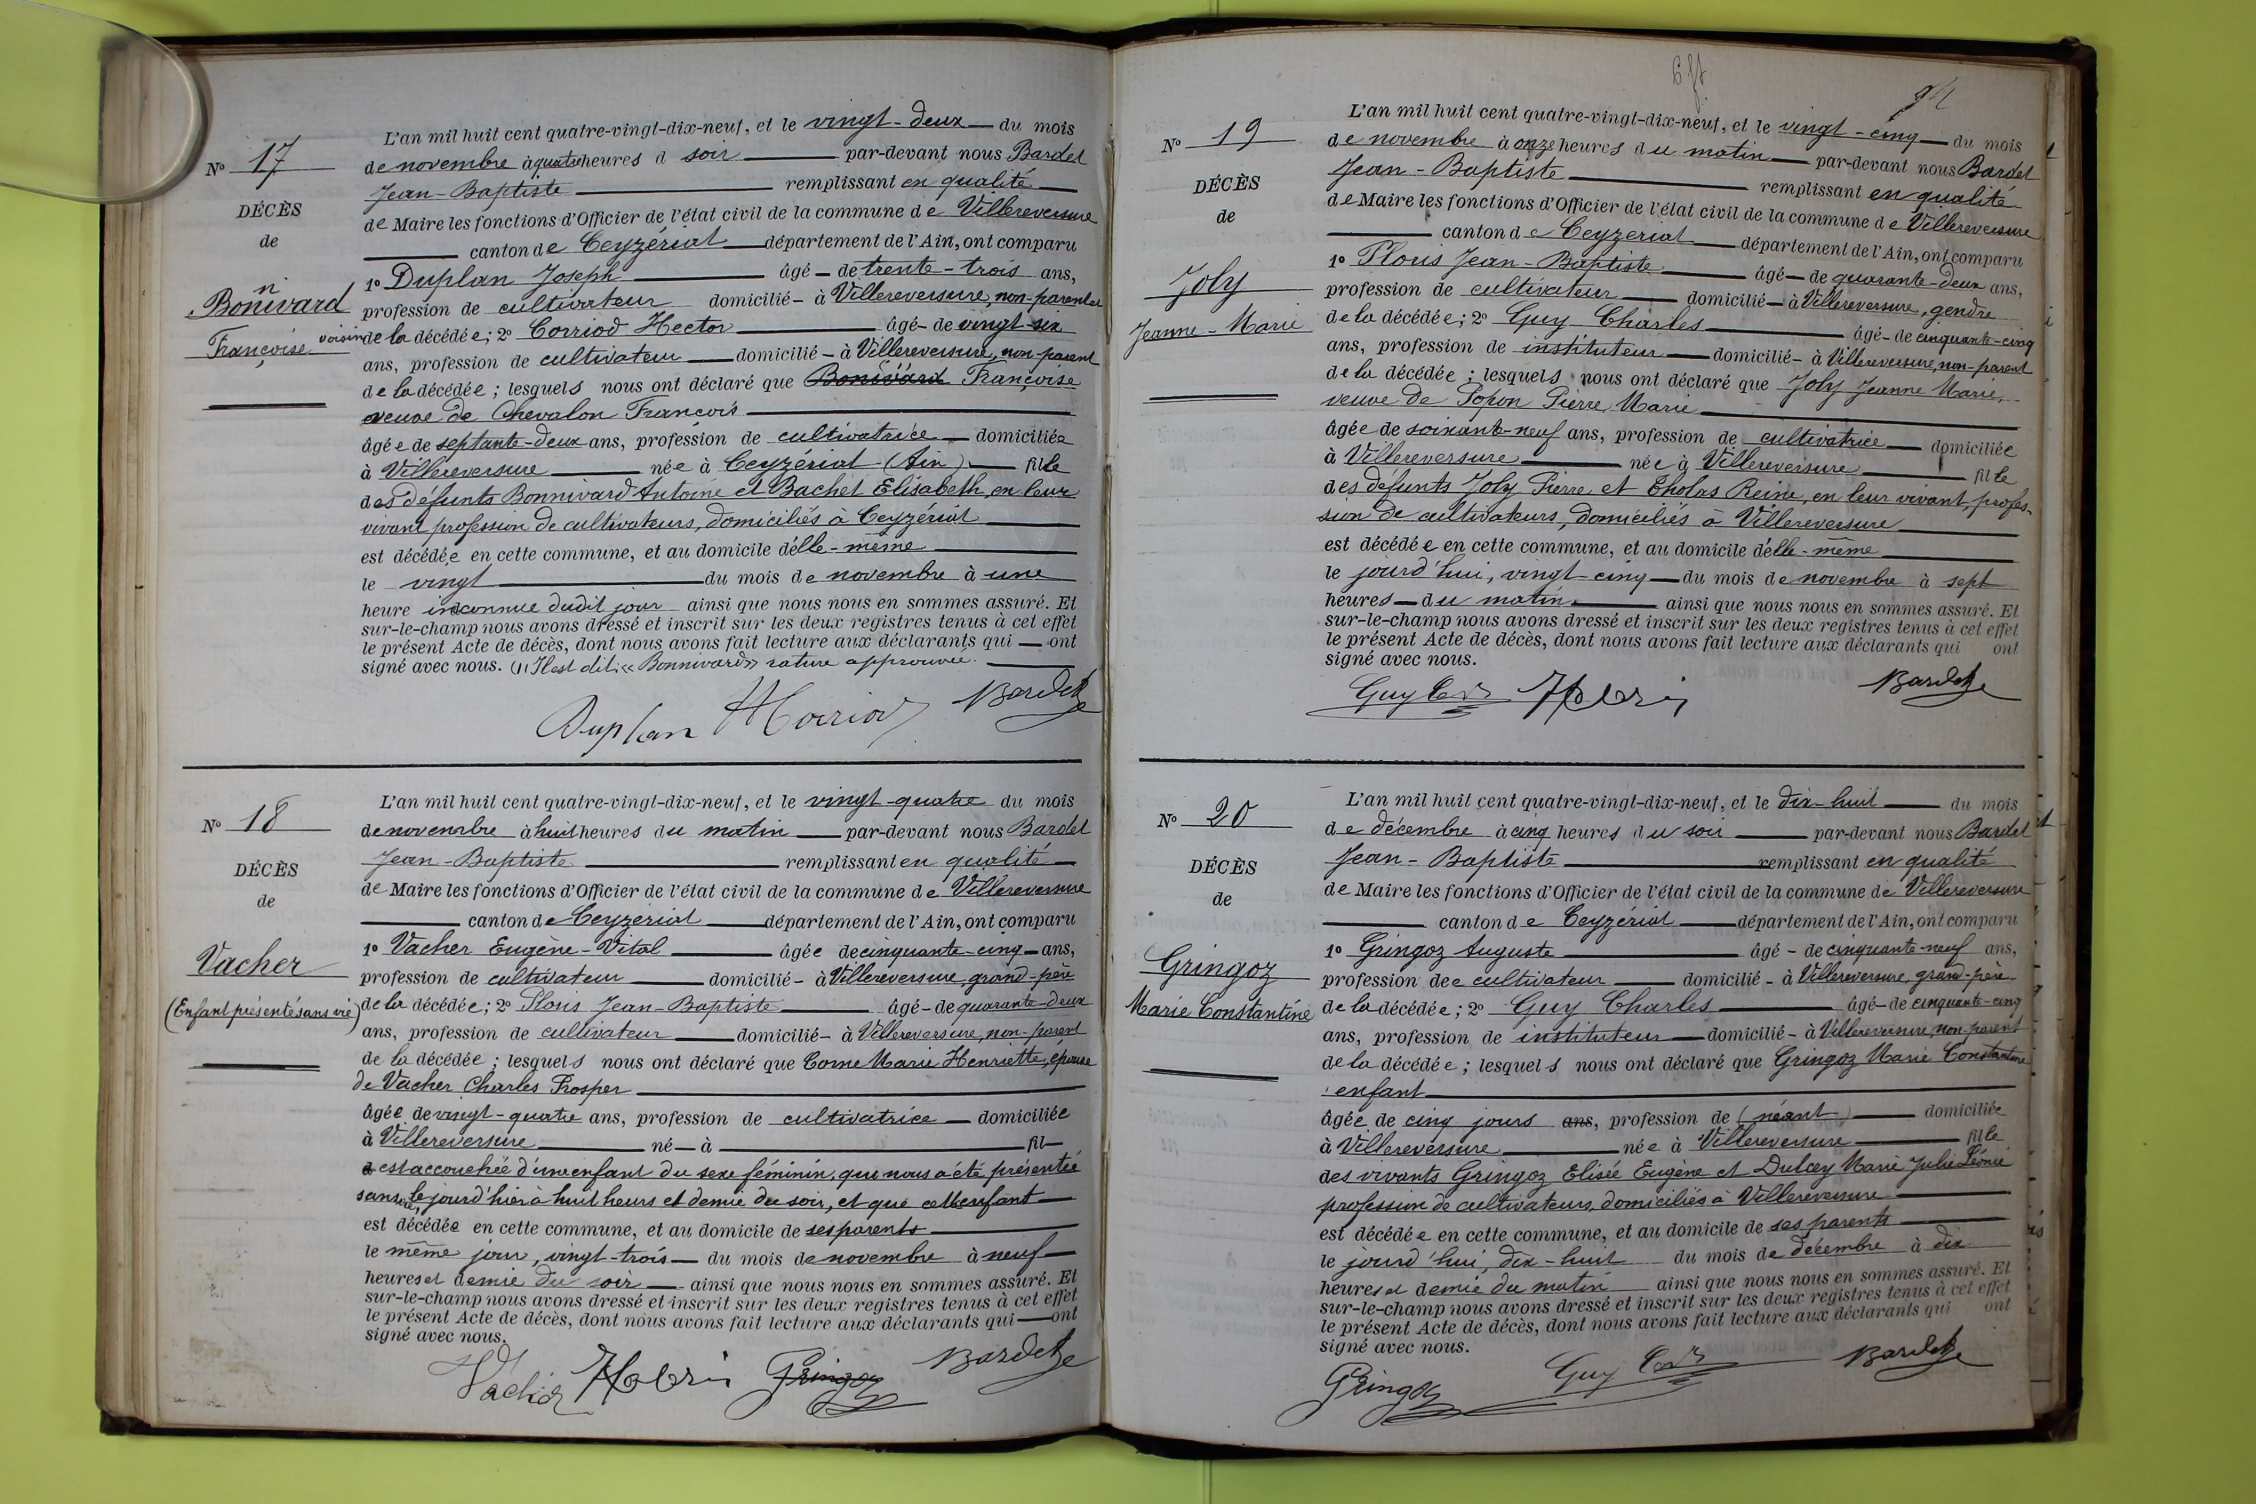 L'an mil huit cent quatre-vingt-dix-neuf, et le vingt-deux du mois
de novembre à quatre heures d soir par-devant nous Bardet
Jean-Baptiste remplissant en qualité
de Maire les fonctions d'Officier de l'état civil de la commune de Villereversure
canton de Ceyzériat département de l'Ain, ont comparu
1o Duplan Joseph âgé de trente-trois ans,
profession de cultivateur domicilié à Villereversure, non-parent et
voisin de la décédée; 2o Corriod Hector âgé de vingt-six
ans, profession de cultivateur domicilié à Villereversure, non-parent
de la décédée; lesquels nous ont déclaré que Bonivard Françoise
veuve de Chevalon François
âgée de septante-deux ans, profession de cultivatrice domiciliée
à Villereversure née à Ceyzériat (Ain) fille
des défunts Bonnivard Antoine et Bachet Elisabeth, en leur
vivant profession de cultivateurs, domiciliés à Ceyzériat
est décédée en cette commune, et au domicile d'elle-même
le vingt du mois de novembre à une
heure inconnue dudit jour ainsi que nous nous en sommes assuré. Et
sur-le-champ nous avons dressé et inscrit sur les deux registres tenus à cet effet
le présent Acte de décès, dont nous avons fait lecture aux déclarants qui ont
signé avec nous. (1) Il est dit: « Bonnivard » rature approuvée.
Duplan HCorriod Bardet
No 17
DÉCÈS
de
Bonnivard
Françoise
L'an mil huit cent quatre-vingt-dix-neuf, et le vingt-quatre du mois
de novembre à huit heures du matin par-devant nous Bardet
Jean-Baptiste remplissant en qualité
de Maire les fonctions d'Officier de l'état civil de la commune de Villereversure
canton de Ceyzériat département de l'Ain, ont comparu
1o Vacher Eugène-Vital âgée de cinquante-cinq ans,
profession de cultivateur domicilié à Villereversure, grand-père
de la décédée; 2o Jean-Baptiste âgé de quarante-deux
ans, profession de cultivateur domicilié à Villereversure, non-parent
de la décédée; lesquels nous ont déclaré que Corne Marie Henriette, épouse
de Vacher Charles Prosper
âgée de vingt-quatre ans, profession de cultivatrice domiciliée
à Villereversure né à fil
est accouchée d'une enfant du sexe féminin, qui nous a été présentée
sans vie, le jourd'hier à huit heures et demie du soir, et que cette enfant
est décédée en cette commune, et au domicile de ses parents
le même jour, vingt-trois du mois de novembre à neuf
heures et demie du soir ainsi que nous nous en sommes assuré. Et
sur-le-champ nous avons dressé et inscrit sur les deux registres tenus à cet effet
le présent Acte de décès, dont nous avons fait lecture aux déclarants qui ont
signé avec nous.
Vacher Gringoz Bardet
No 18
DÉCÈS
de
Vacher
(Enfant présenté sans vie)
94
L'an mil huit cent quatre-vingt-dix-neuf, et le vingt-cinq du mois
de novembre à onze heures du matin par-devant nous Bardet
Jean-Baptiste remplissant en qualité
de Maire les fonctions d'Officier de l'état civil de la commune de Villereversure
canton de Ceyzeriat département de l'Ain, ont comparu
1o Jean-Baptiste âgé de quarante-deux ans,
profession de cultivateur domicilié à Villereversure, gendre
de la décédée; 2o Guy Charles âgé de cinquante-cinq
ans, profession de instituteur domicilié à Villereversure, non-parent
de la décédée; lesquels nous ont déclaré que Joly Jeanne Marie,
veuve de Popon Pierre Marie
âgée de soixante-neuf ans, profession de cultivatrice domiciliée
à Villereversure née à Villereversure fille
des défunts Joly Pierre et Reine, en leur vivant, profes-
sion de cultivateurs, domiciliés à Villereversure
est décédée en cette commune, et au domicile d'elle-même
le jourd'hui, vingt-cinq du mois de novembre à sept
heures du matin ainsi que nous nous en sommes assuré. Et
sur-le-champ nous avons dressé et inscrit sur les deux registres tenus à cet effet
le présent Acte de décès, dont nous avons fait lecture aux déclarants qui ont
signé avec nous.
Guy Bardet
No 19
DÉCÈS
de
Joly
Jeanne-Marie
L'an mil huit cent quatre-vingt-dix-neuf, et le dix-huit du mois
de décembre à cinq heures du soir par-devant nous Bardet
Jean-Baptiste remplissant en qualité
de Maire les fonctions d'Officier de l'état civil de la commune de Villereversure
canton de Ceyzériat département de l'Ain, ont comparu
1o Gringoz Auguste âgé de cinquante-neuf ans,
profession de cultivateur domicilié à Villereversure, grand-père
de la décédée; 2o Guy Charles âgé de cinquante-cinq
ans, profession de instituteur domicilié à Villereversure, non-parent
de la décédée; lesquels nous ont déclaré que Gringoz Marie Constantine
enfant
âgée de cinq jours ans, profession de (néant) domiciliée
à Villereversure née à Villereversure fille
des vivants Gringoz Elisée Eugène et Dulcey Marie Julie Léonie
profession de cultivateurs, domiciliés à Villereversure
est décédée en cette commune, et au domicile de ses parents
le jourd'hui, dix-huit du mois de décembre à dix
heures et demie du matin ainsi que nous nous en sommes assuré. Et
sur-le-champ nous avons dressé et inscrit sur les deux registres tenus à cet effet
le présent Acte de décès, dont nous avons fait lecture aux déclarants qui ont
signé avec nous.
Gringoz Guy Bardet
No 20
DÉCÈS
de
Gringoz
Marie Constantine